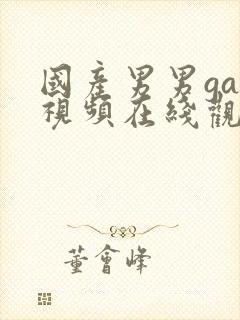 國產男男ga
視頻在綫觀
董會峰